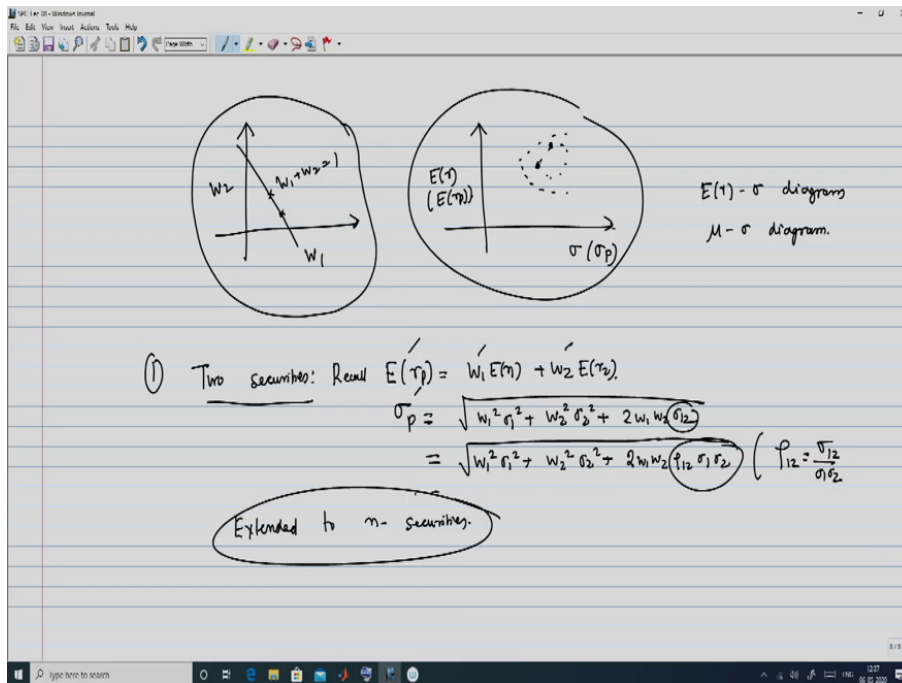 SPC Lec 08 - Windows Journal
File Edit View Insert Actions Tools Help
Page Width
W2
W1+W2=1
W1
E(r)
(E(rp))
σ (σp)
E(r) - σ diagram
μ - σ diagram.
① Two securities: Recall E(rp) = W1 E(r1) + W2 E(r2).
σp = √(W1² σ1² + W2² σ2² + 2W1 W2 σ12)
= √(W1² σ1² + W2² σ2² + 2W1 W2 ρ12 σ1 σ2) ( ρ12 = σ12/σ1σ2
Extended to n- securities.
8/8
Type here to search
ING
12:07